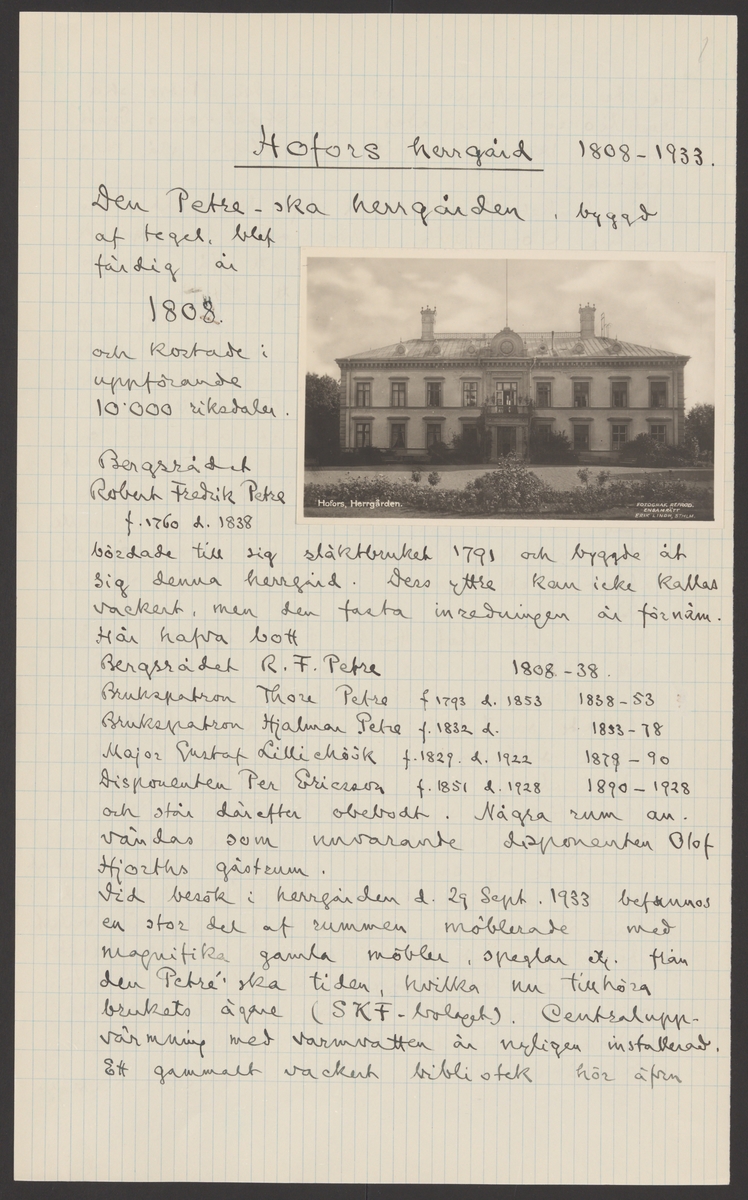 Hofors herrgård 1808-1933.
Den Petre-ska herrgården, byggd
af tegel, blef
färdig år
1808.
och kostade i
uppförande
10.000 riksdaler.
Bergsrådet
Robert Fredrik Petre
f.1760 d. 1838
Hofors, Herrgården.
ENSAMRÄTT
ERIK LINDH, STHLM.
bördade till sig släktbruket 1791 och byggde åt
sig denna herrgård. Dess yttre kan icke kallas
vackert, men den fasta inredningen är förnäm.
Här hafva bott
Bergsrådet R. F. Petre 1808-38.
Brukspatron Thore Petre f 1793 d. 1853 1838-53
Brukspatron Hjalmar Petre f. 1832 d. 1853-78
Major Gustaf Lilliehöök f. 1829. d. 1922 1879-90
Disponenten Per Ericsson f. 1851 d. 1928 1890-1928
och står därefter obebodt. Några rum an-
vändas som nuvarande disponenten Olof
Hjorths gästrum.
Vid besök i herrgården d. 29 Sept. 1933 befunnos
en stor del af rummen möblerade med
magnifika gamla möbler, speglar etc. från
den Petré'ska tiden, hvilka nu tillhöra
brukets ägare (SKF-bolaget). Centralupp-
värmning med varmvatten är nyligen installerad.
Ett gammalt vackert bibliotek hör äfven